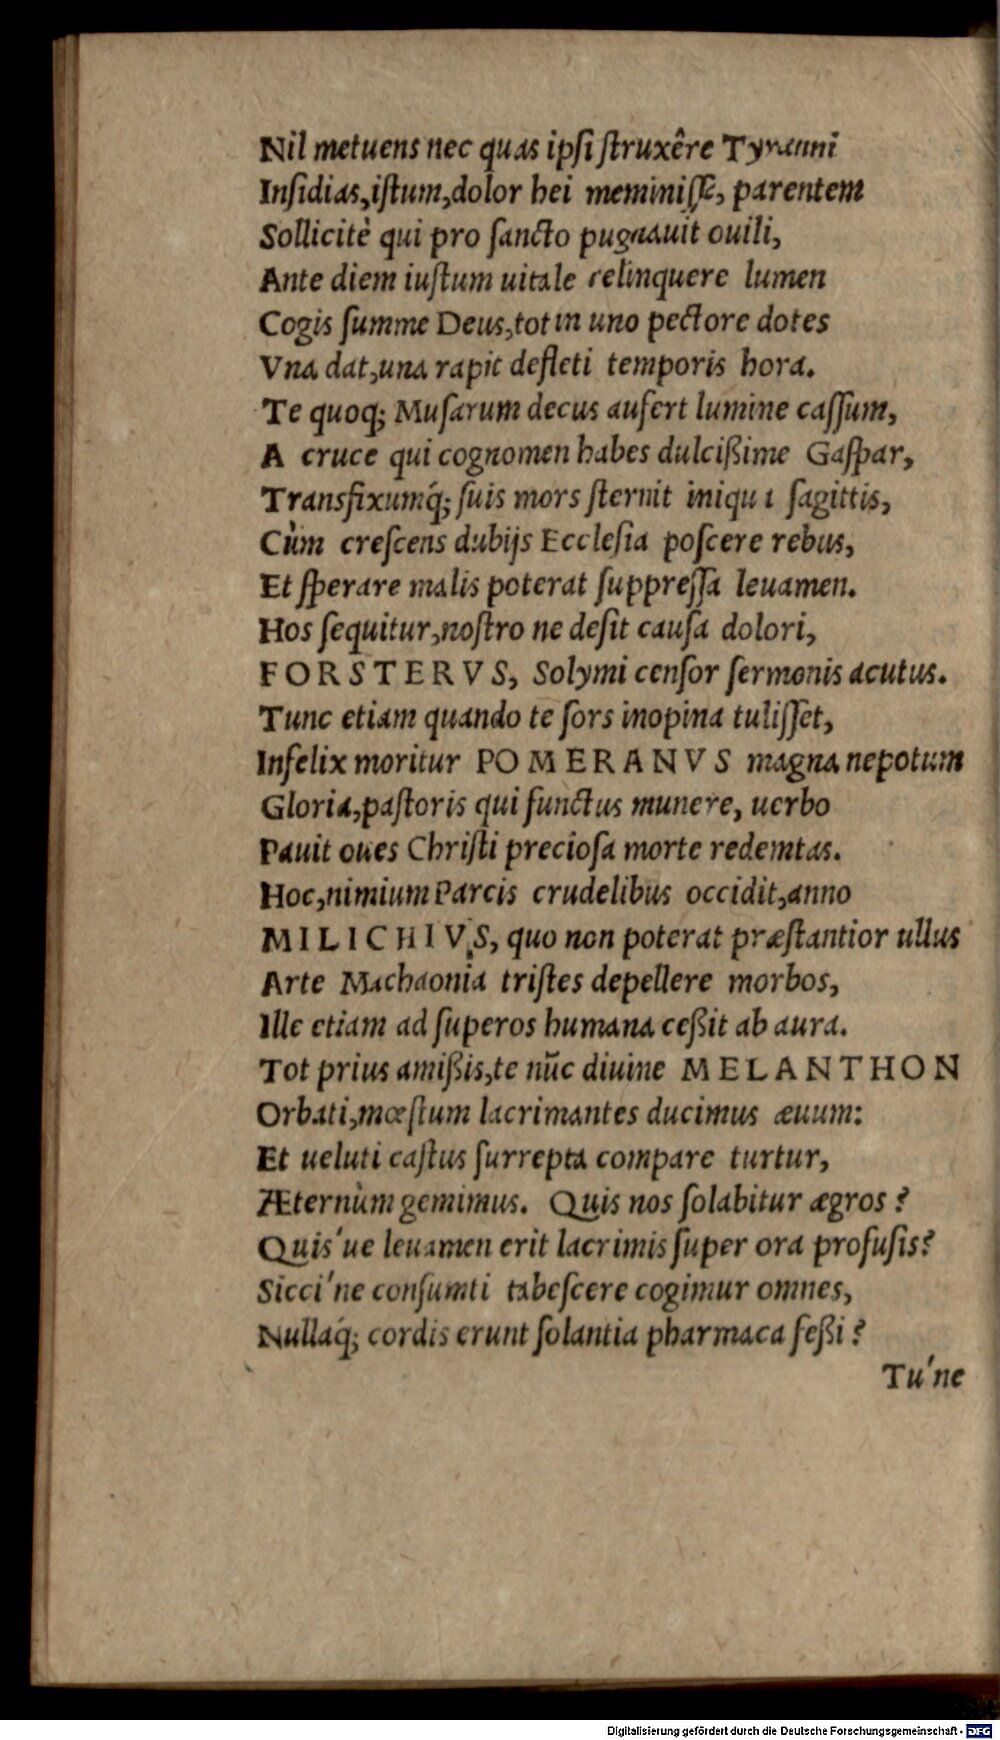 Nil metuens nec quas ipsi struxêre Tyranni
Insidias, istum, dolor hei meminisse, parentem
Sollicitè qui pro sancto pugnauit ouili,
Ante diem iustum uitale relinquere lumen
Cogis summe Deus, tot in uno pectore dotes
Vna dat, una rapit defleti temporis hora.
Te quoq; Musarum decus aufert lumine cassum,
A cruce qui cognomen habes dulcißime Gaspar,
Transfixumq́; suis mors sternit iniqua sagittis,
Cùm crescens dubijs Ecclesia poscere rebus,
Et sperare malis poterat suppressa leuamen.
Hos sequitur, nostro ne desit causa dolori,
FORSTERVS, Solymi censor sermonis acutus.
Tunc etiam quando te sors inopina tulisset,
Infelix moritur POMERANVS magna nepotum
Gloria, pastoris qui functus munere, uerbo
Pauit oues Christi preciosa morte redemtas.
Hoc, nimium Parcis crudelibus occidit, anno
MILICHIVS, quo non poterat præstantior ullus
Arte Machaonia tristes depellere morbos,
Ille etiam ad superos humana ceßit ab aura.
Tot prius amißis, te nūc diuine MELANTHON
Orbati, mœstum lacrimantes ducimus æuum:
Et ueluti castus surrepta compare turtur,
Æternùm gemimus. Quis nos solabitur ægros?
Quis'ue leuamen erit lacrimis super ora profusis?
Sicci'ne consumti tabescere cogimur omnes,
Nullaq́; cordis erunt solantia pharmaca feßi?
Tu'ne
Digitalisierung gefördert durch die Deutsche Forschungsgemeinschaft - DFG